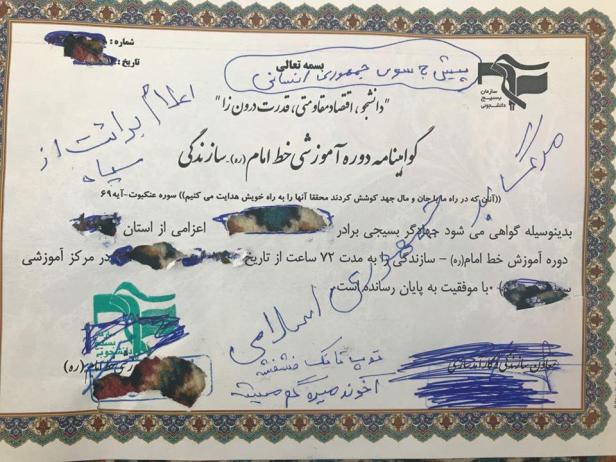 شماره :
تاریخ :
بسمه تعالی
پیش بسوی جمهوری انسانی
سازمان
بسیج
دانشجویی
"دانشجو، اقتصاد مقاومتی، قدرت درون زا"
اعلام برائت از
سپاه
گواهینامه دوره آموزشی خط امام (ره)_سازندگی
مرگ بر جمهوری اسلامی
((آنان که در راه ما با جان و مال جهد کوشش کردند محققا آنها را به راه خویش هدایت می کنیم)) سوره عنکبوت-آیه ۶۹
بدینوسیله گواهی می شود جهادگر بسیجی برادر اعزامی از استان
دوره آموزش خط امام(ره) - سازندگی را به مدت ۷۲ ساعت از تاریخ در مرکز آموزشی
با موفقیت به پایان رسانده است.
سازمان
بسیج
دانشجویی
خط امام (ره)
توپ تانک فشفشه
آخوند میره گم میشه